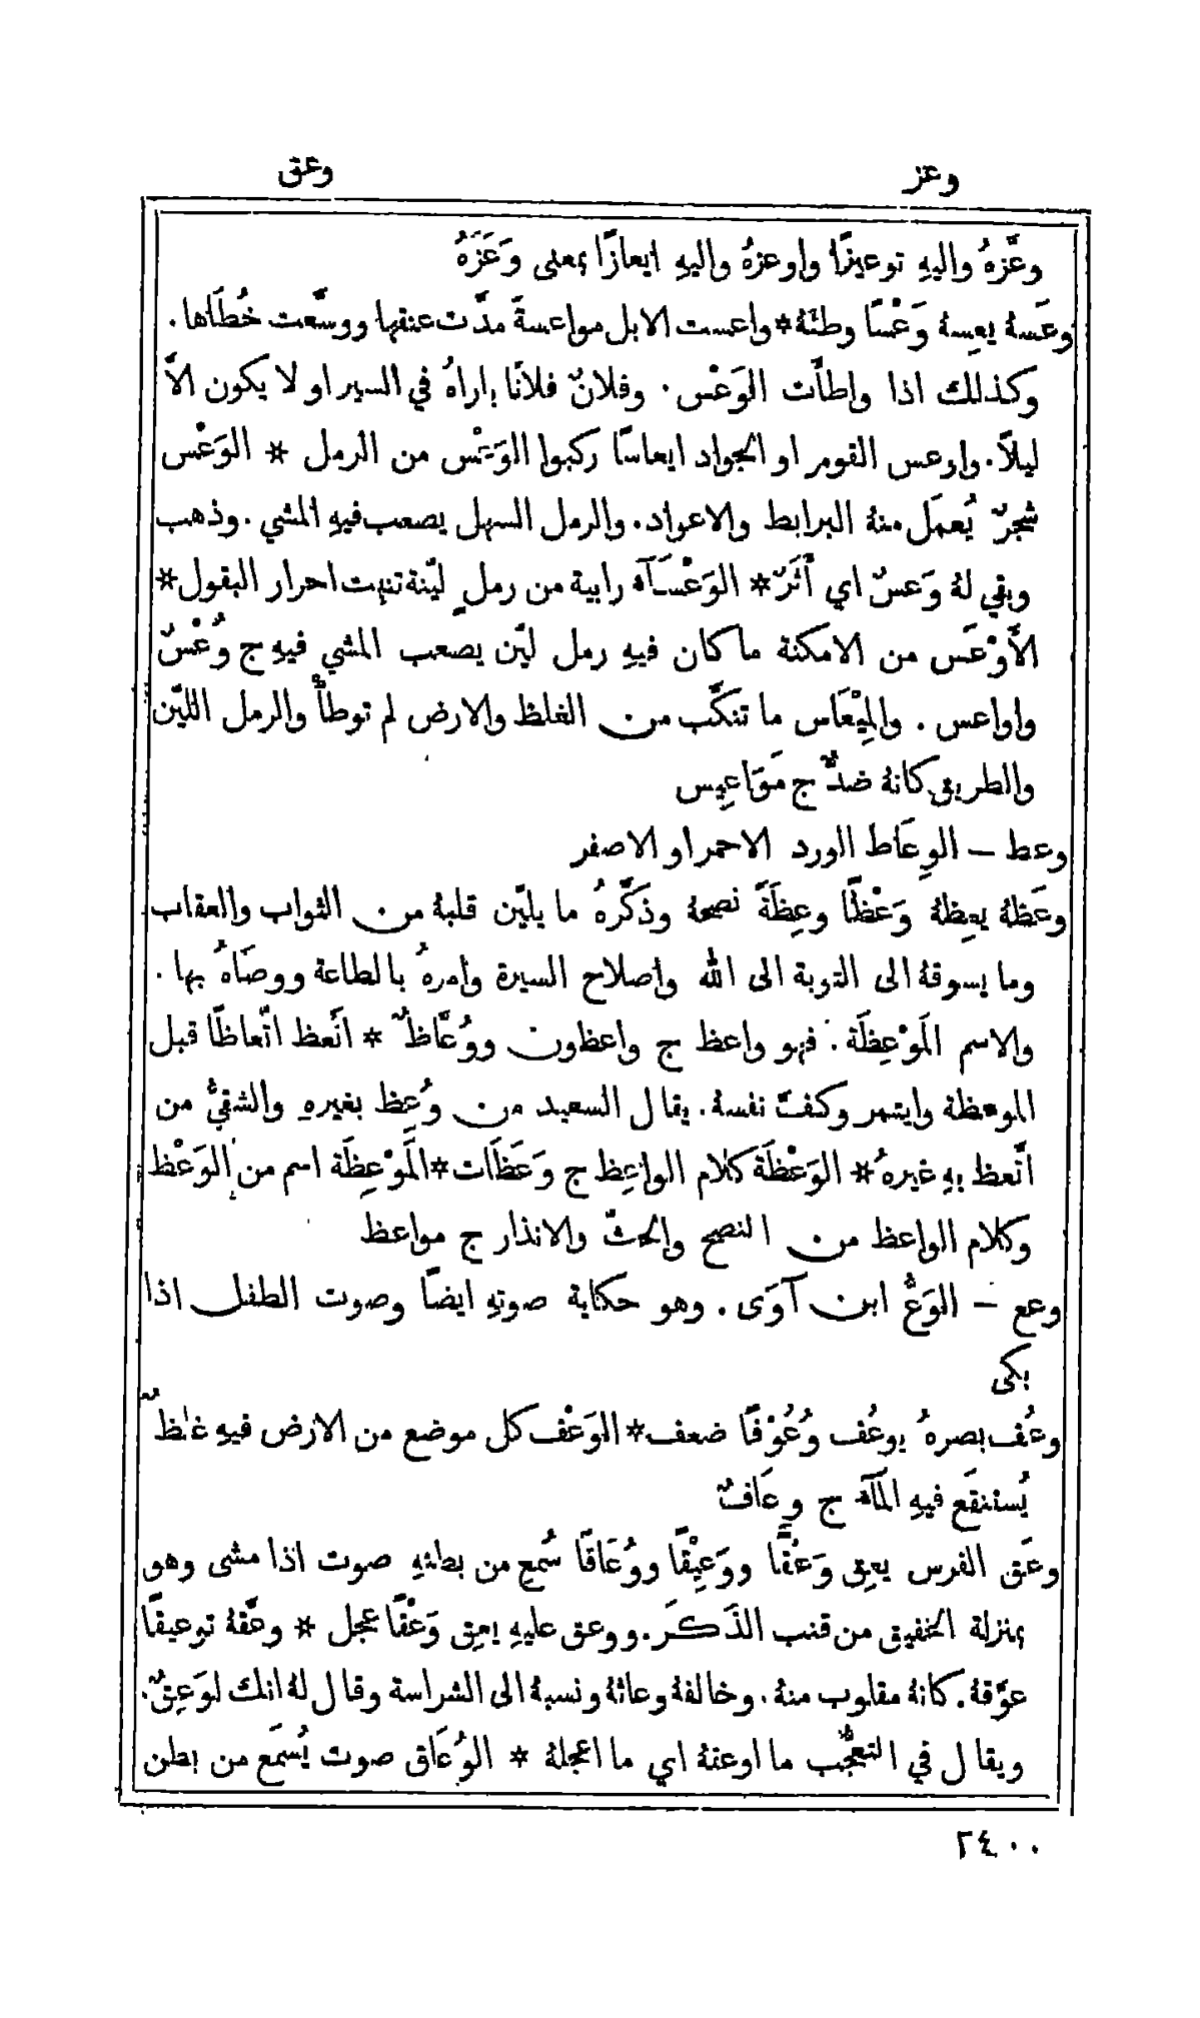 وعز
وعق
وعَّزهُ واليهِ توعيزًا واوعزهُ واليهِ ايعازًا بمعنى وَعَزَهُ
وعَسهُ يعِسهُ وَعْسًا وطئَهُ * واعست الابل مواعسةً مدَّت عنقها ووسَّعت خُطَاها .
وكذلك اذا واطأَت الوَعْس . وفلانٌ فلانًا باراهُ في السير او لا يكون الاَّ
ليلاً . واوعس القوم او الجواد ايعاسًا ركبوا الوَعْس من الرمل * الوَعْس
شجرٌ يُعمَل منهُ البرابط والاعواد . والرمل السهل يصعب فيهِ المشي . وذهب
وبقي لهُ وَعسٌ اي أَثَرٌ * الوَعْسَآءُ رابية من رملٍ ليّنة تنبت احرار البقول *
الأَوْعَس من الامكنة ما كان فيهِ رمل ليّن يصعب المشي فيهِ ج وُعْسٌ
واواعس . والمِيْعَاس ما تنكَّب من الغلظ والارض لم توطأْ والرمل الليّن
والطريق كانهُ ضدٌّ ج مَوَاعِيس
وعط – الوِعَاط الورد الاحمر او الاصفر
وعَظهُ يعِظهُ وَعْظًا وعِظَةً نصحهُ وذكَّرهُ ما يليّن قلبهُ من الثواب والعقاب
وما يسوقهُ الى التوبة الى الله واصلاح السيرة وامرهُ بالطاعة ووصَاهُ بها .
والاسم المَوْعِظَة . فهو واعظ ج واعظون ووُعَّاظٌ * اتَّعظ اتّعاظًا قبل
الموعظة وايتمر وكفَّ نفسهُ . يقال السعيد من وُعِظ بغيرهِ والشقيُّ من
اتَّعظ بهِ غيرهُ * الوَعْظَة كلام الواعِظ ج وَعَظَات * المَوْعِظَة اسم من الوَعْظ
وكلام الواعظ من النصح والحثّ والانذار ج مواعظ
وعع – الوَعُّ ابن آوَى . وهو حكاية صوتهِ ايضًا وصوت الطفل اذا
بكى
وعُف بصرهُ يوعُف وُعُوْفًا ضعف * الوَعْف كل موضع من الارض فيهِ غلظٌ
يُستنقَع فيهِ المَآءُ ج وِعَافٌ
وعَق الفرس يعِق وَعْقًا ووَعِيْقًا ووُعَاقًا سُمع من بطنهِ صوت اذا مشى وهو
بمنزلة الخفيق من قنب الذَكَر . ووعق عليهِ يعِق وَعْقًا عجل * وعَّقهُ توعيقًا
عوَّقهُ . كانهُ مقلوب منهُ . وخالفهُ وعاثهُ ونسبهُ الى الشراسة وقال لهُ انك لوَعِقٌ .
ويقال في التعجُّب ما اوعقهُ اي ما اعجلهُ * الوُعَاق صوت يُسمَع من بطن
٢٤٠٠